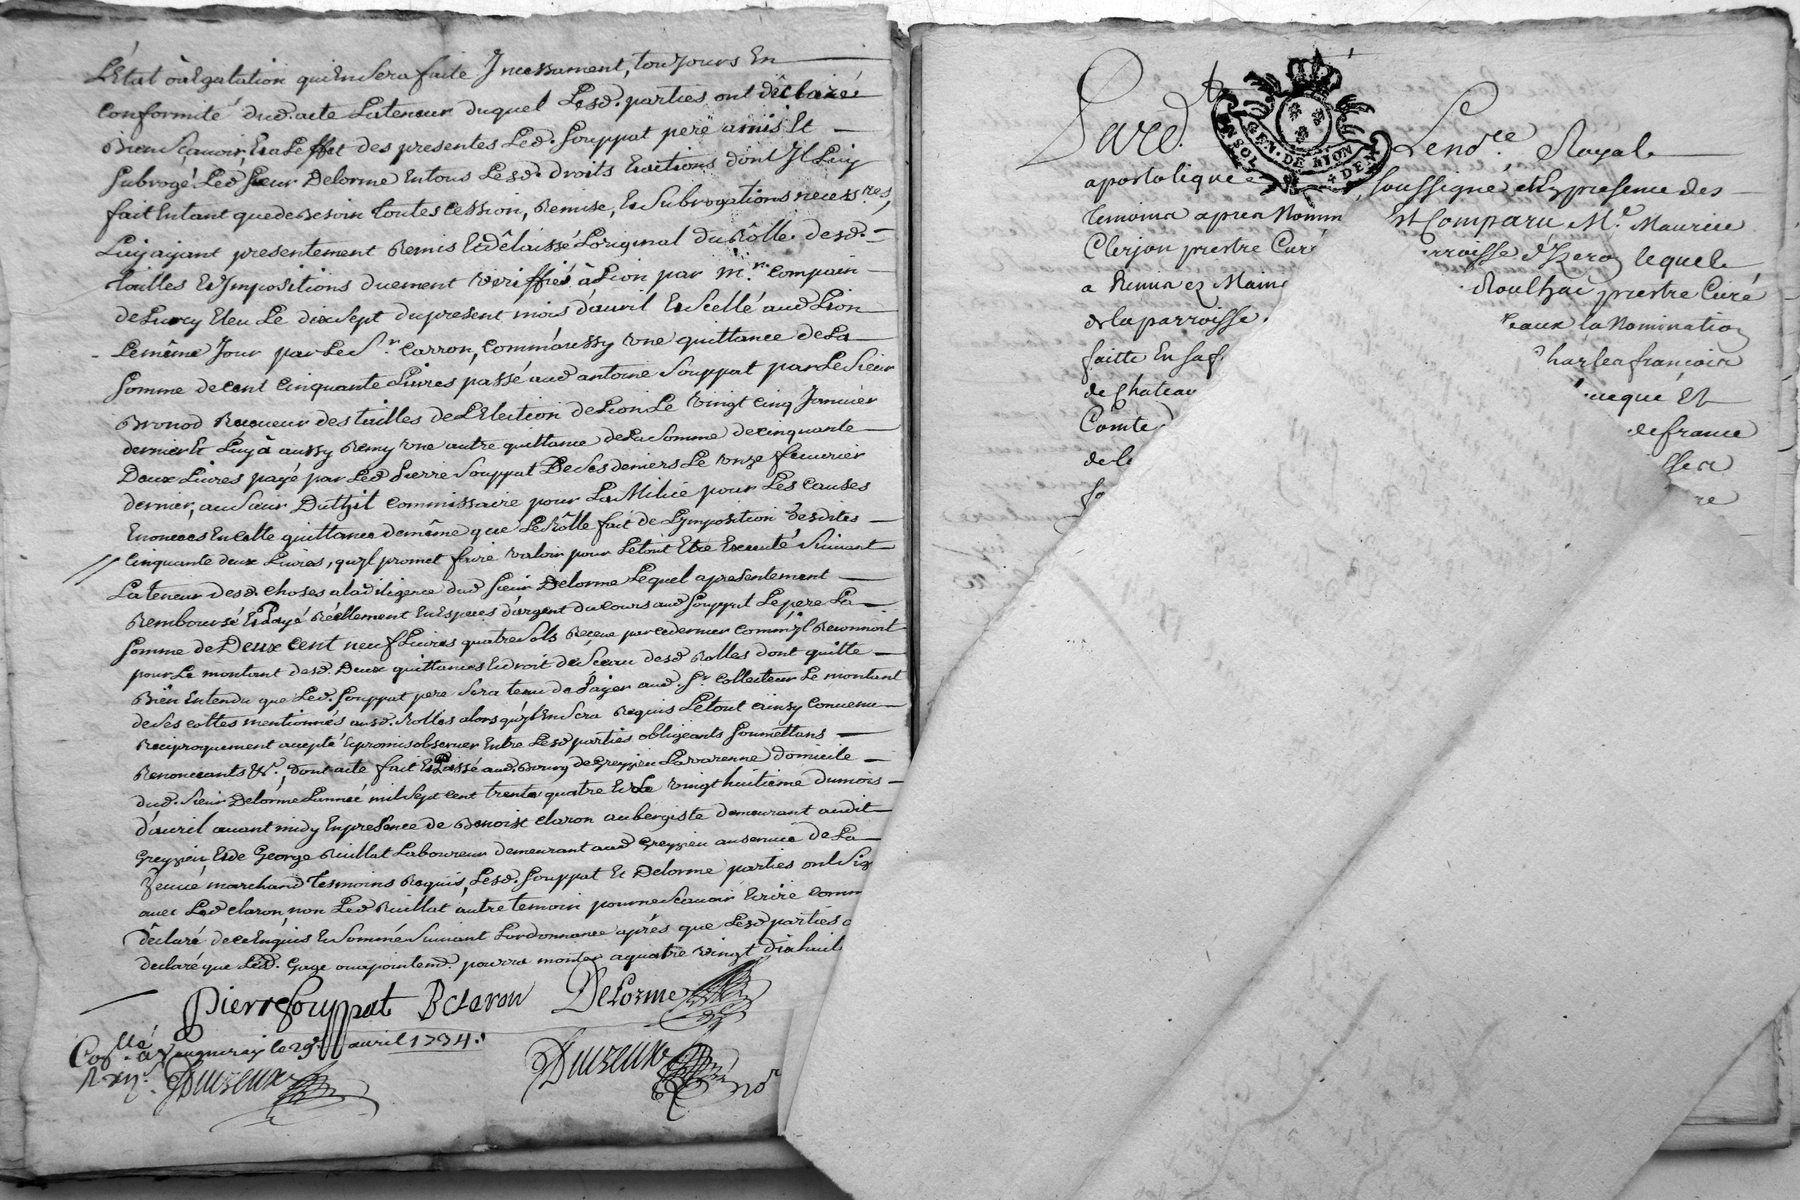 L'Etat ou Egalation qui En sera faite Incessament, toujours En
Conformité dud. acte La teneur duquel Lesd. parties ont déclairé
Bien Scavoir, Et a L'effet des presentes Led. Souppat pere a mis Et
Subrogé Led. Sieur Delorme En tous Lesd. droits Et actions dont Il Luy
fait En tant que de Besoin toutes cession, Remise, Et Subrogations necess.res,
Luy ajant presentement Remis Et délaissé L'original du Rôlle desd.
tailles Et Impositions duement veriffié à Lion par Mr. Compain
De Lurcy Eleu Le dix sept du present mois d'avril Et Scellé aud Lion
Le même Jour par Le Sr. Carron, Comm' aussy une quittance de La
Somme de cent Cinquante Livres passé aud antoine Souppat par Le Sieur
Bronod Receveur des tailles de L'Election de Lion Le vingt Cinq Janvier
dernier Et Luy à aussy Remy une autre quittance de La Somme de cinquante
Deux Livres payé par Led Pierre Souppat De Ses deniers Le onze fevrier
dernier, au Sieur Duthil Commissaire pour La Milice pour Les Causes
Enoncées En Cette quittance de même que Le Rôlle fait de L'Imposition desdites
Cinquante deux Livres, qu'il promet faire valoir pour Le tout Etre Executé Suivant
La teneur desd. choses a la diligence dud Sieur Delorme Lequel a presentement
Remboursé Et Payé Réellement En Especes d'argent du Cours aud Souppat Le pere La
Somme de Deux Cent neuf Livres quatre Sols Reçeue par ce dernier Comm'il Reconnoit
pour Le montant desd. Deux quittances Et droit de Sceau desd Rolles dont quitte
Bien Entendu que Led Souppat pere Sera tenu de Païer aud. Sr. Collecteur Le montant
de Ses Cottes mentionnés ausd. Rolles alors qu'il En Sera Requis Le tout ainsy Convenu
Reciproquement accepté Et promis observer Entre Lesd parties obligeants Soumettans
Renonceants &c., Dont acte fait Et Passé aud. Bourg de Greyzieu La varenne domicile
dud. Sieur Delorme L'année mil Sept Cent trente quatre Et Le vingt huitieme du mois
d'avril avant midy En presence de Benoist Claron aubergiste demeurant audit
Greyzieu, Et de George Ruillat Laboureur demeurant aud Greyzieu au service de La
marchand tesmoins Requis, Lesd. Souppat Et Delorme parties ont Sig
avec Led Claron, non Led Ruillat autre temoin pour ne Scavoir Ecrire Comm
déclaré de ce Enquis Et Sommé Suivant L'ordonnance après que Lesd parties o
declaré que Led. Gage ou apointemt. pourra monter a quatre vingt dix huit
Pierre Souppat BClaron DeLorme
Coll.lé à Vaugneray le 29e. avril 1734.
Duizeux
Duizeux nore
Pard.t Le no.re Royal
GEN. DE LION
apostolique soussigné et En presence des
temoins apres Nomm Est Comparu Me. Maurice
Clerjon prestre Curé rroisse d'Izeron lequel
a Remis ez Mains Roulhac prestre Curé
de la parroisse eaux la Nomination
faitte En sa f harles francois
de Chateau veque Et
Comte de france
de L